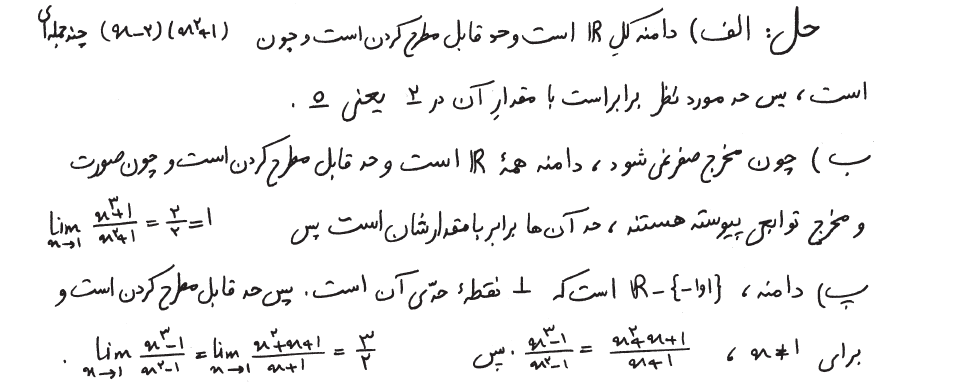 حل: الف) دامنه کل ℝ است و حد قابل مطرح کردن است و چون (x-۲)(x^۲+۱) چندجمله‌ای
است، پس حد مورد نظر برابر است با مقدار آن در ۲ یعنی ۰.
ب) چون مخرج صفر نمی‌شود، دامنه همهٔ ℝ است و حد قابل مطرح کردن است و چون صورت
و مخرج توابعی پیوسته هستند، حد آن‌ها برابر با مقدارشان است پس lim_{x→۱} (x^۳+۱)/(x^۲+۱) = ۲/۲ = ۱
پ) دامنه، ℝ-{-۱و۱} است که ۱ نقطهٔ حدّی آن است. پس حد قابل مطرح کردن است و
برای x≠۱، (x^۳-۱)/(x^۲-۱) = (x^۲+x+۱)/(x+۱). پس lim_{x→۱} (x^۳-۱)/(x^۲-۱) = lim_{x→۱} (x^۲+x+۱)/(x+۱) = ۳/۲.